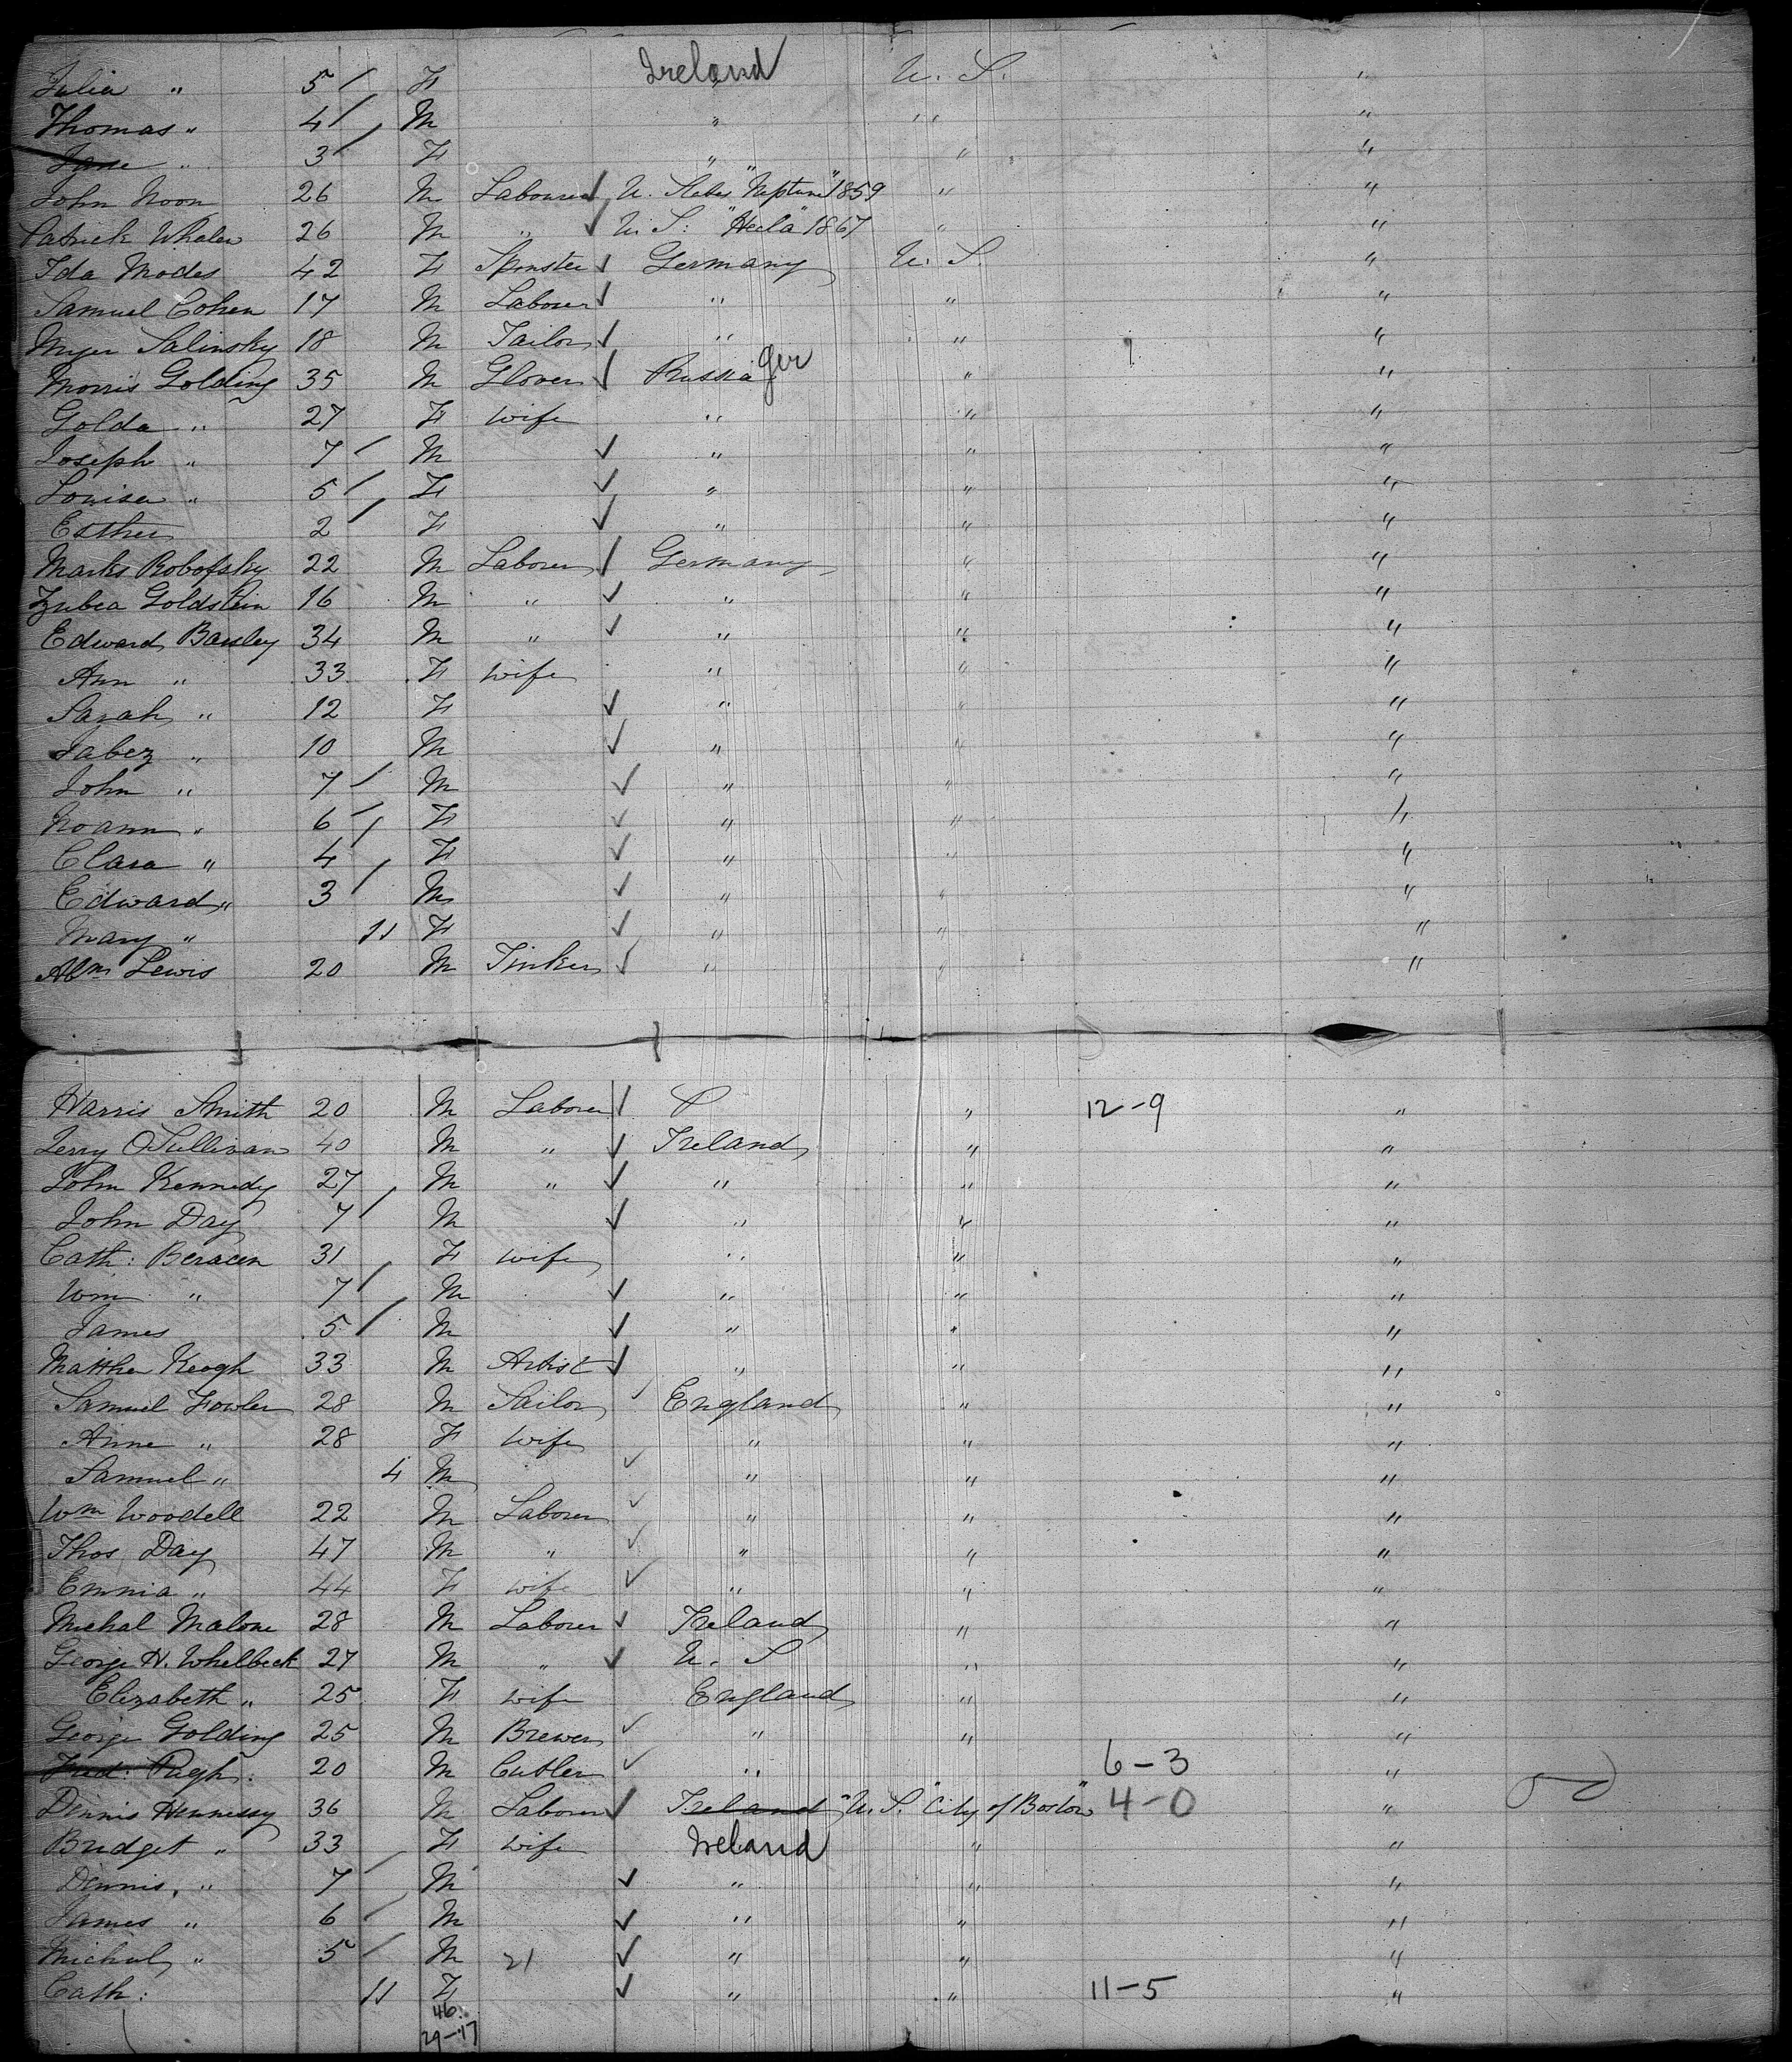 Julia " 5 F Ireland U. S. "
Thomas " 4 M " " "
Jane " 3 F " " "
John Noon 26 M Labourer U. States "Neptune" 1859 " "
Patrick Whalen 26 M " U. S. "Hecla" 1867 " "
Ida Modes 42 F Spinster Germany U. S. "
Samuel Cohen 17 M Laborer " " "
Myer Salinsky 18 M Tailor " " "
Morris Golding 35 M Glover Russia Ger " "
Golda " 27 F wife " " "
Joseph " 7 M " " "
Louisa " 5 F " " "
Esther 2 F " " "
Marks Robofsky 22 M Laborer Germany " "
Goldstein 16 M " " " "
Edward Bansley 34 M " " " "
Ann " 33 F wife " " "
Sarah " 12 F " " "
Jabez " 10 M " " "
John " 7 M " " "
Noann " 6 F " " "
Clara " 4 F " " "
Edward " 3 M " " "
Mary " 11 F " " "
Abm Lewis 20 M Tinker " " "
Harris Smith 20 M Laborer P " 12-9 "
Jerry OSullivan 40 M " Ireland " "
John Kennedy 27 M " " " "
John Day 7 M " " "
Cath: Beracen 31 F wife " " "
Wm " 7 M " " "
James 5 M " " "
Matthew Keogh 33 M Artist " " "
Samuel Fowler 28 M Sailor England " "
Anne " 28 F wife " " "
Samuel " 4 M " " "
Wm Woodell 22 M Laborer " " "
Thos Day 47 M " " " "
Emma " 44 F wife " " "
Michal Malone 28 M Laborer Ireland " "
George H. Whelbeck 27 M " U. S " "
Elizabeth " 25 F wife England " "
George Golding 25 M Brewer " " "
Fred: Pugh. 20 M Cutler " 6-3 "
Dennis Hennessy 36 M Laborer Ireland U. S. "City of Boston" 4-0 "
Bridget " 33 F wife Ireland " "
Dennis, " 7 M " " "
James " 6 M " " "
Michal " 5 M 21 " " "
Cath: 11 F " " 11-5 "
46
29-17